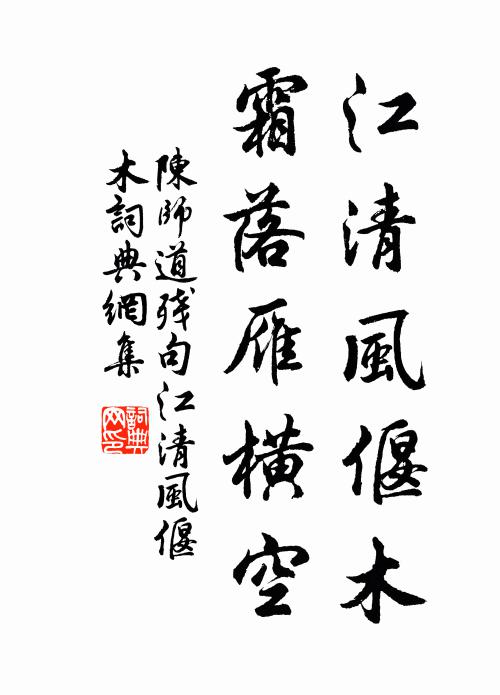 江清風偃木
霜落雁橫空
陳師道殘句江清風偃
木詞典網集
詞典
网印